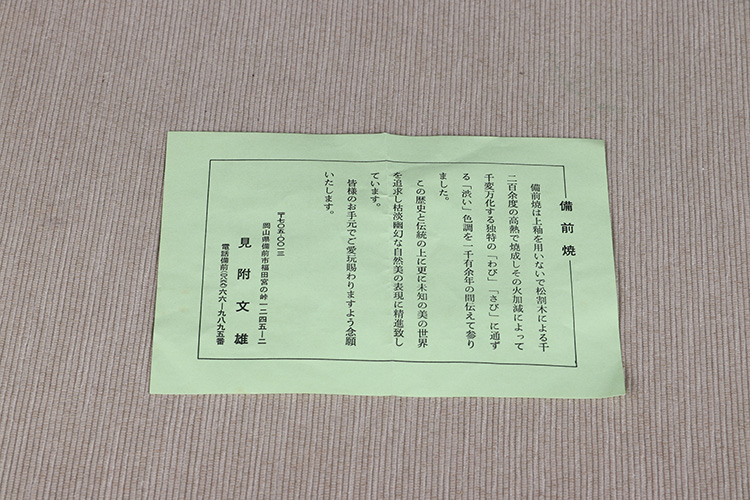 備前焼
備前焼は上釉を用いないで松割木による千
二百余度の高熱で焼成しその火加減によって
千変万化する独特の「わび」「さび」に通ず
る「渋い」色調を一千有余年の間伝えて参り
ました。
この歴史と伝統の上に更に未知の美の世界
を追求し枯淡幽幻な自然美の表現に精進致し
ています。
皆様のお手元でご愛玩賜わりますよう念願
いたします。
〒七〇五-〇〇一三
岡山県備前市福田宮の峠一二四五-二
見附文雄
電話備前(〇八六九)六六-九八九五番